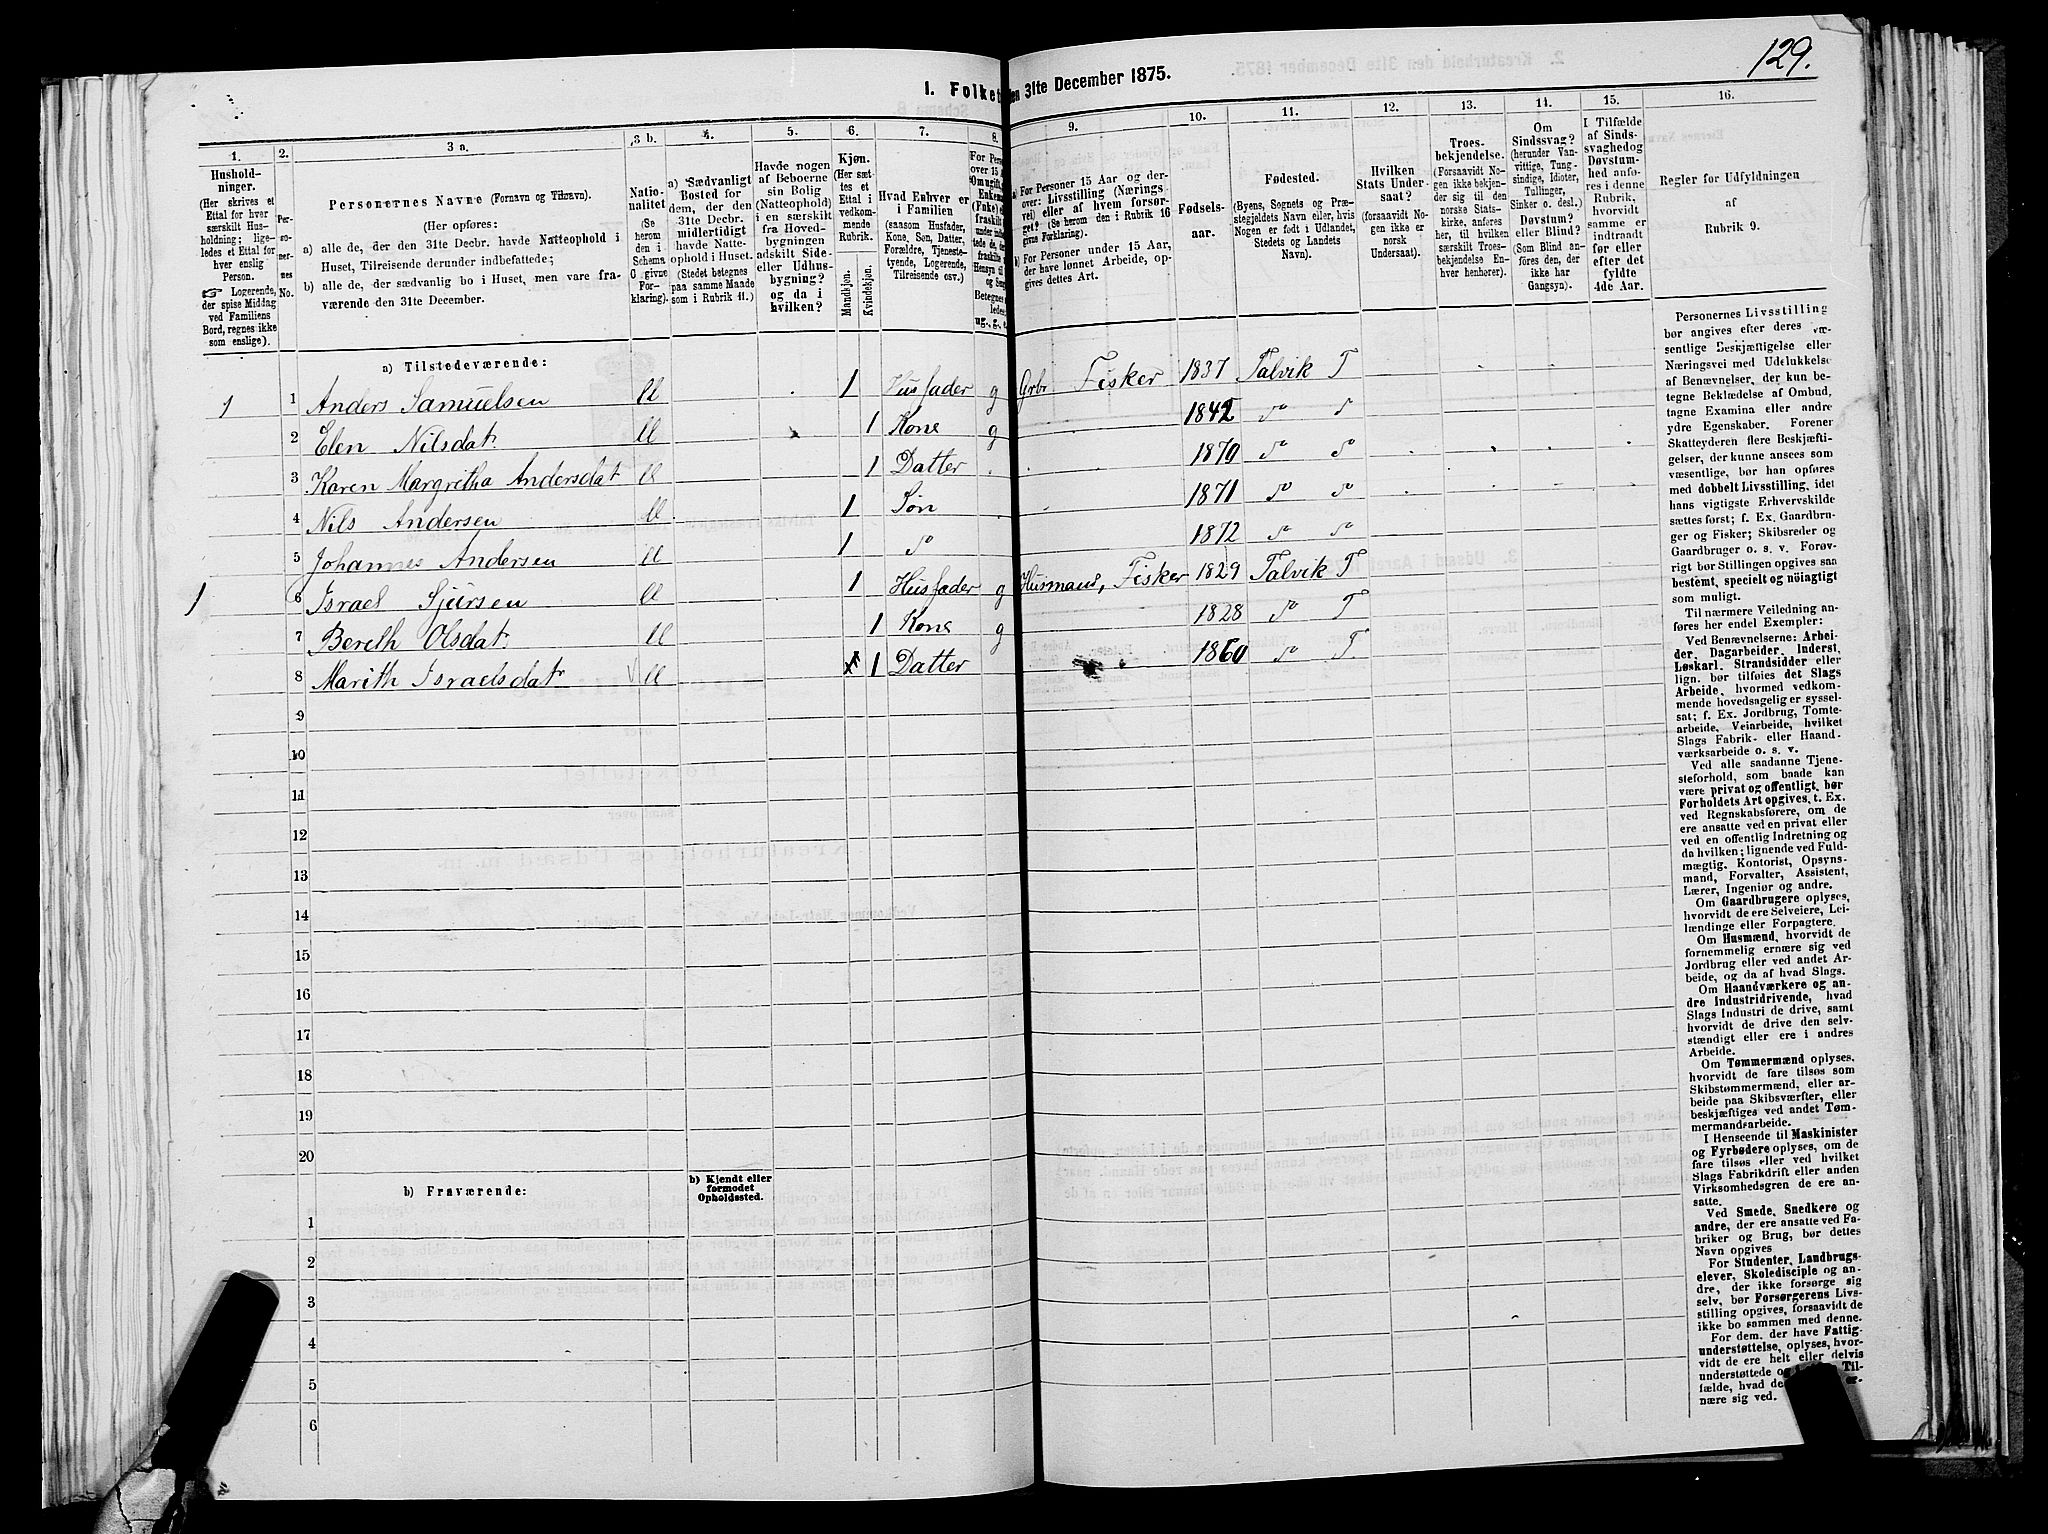 129.
1. Folket
en 31te December 1875.
1. 2. 3 a. 3 b. 4. 5. 6. 7. 8. 9. 10. 11. 12. 13. 14. 15. 16.
Hushold-
ninger.
(Her skrives et
Ettal for hver
særskilt Hus-
holdning; lige-
ledes et Ettal for
hver enslig
Person.
☞ Logerende,
der spise Middag
ved Familiens
Bord, regnes ikke
som enslige).
Per-
so-
ner-
nes
No.
Personernes Navne (Fornavn og Tilnavn).
(Her opføres:
a) alle de, der den 31te Decbr. havde Natteophold i
Huset, Tilreisende derunder indbefattede;
b) alle de, der sædvanlig bo i Huset, men vare fra-
værende den 31te December.
Natio-
nalitet
(Se
herom
den i
Schema
C givne
For-
klaring).
a) Sædvanligt
Bosted for
dem, der den
31te Decbr.
midlertidigt
havde Natte-
ophold i Huset.
(Stedet betegnes
paa samme Maade
som i Rubrik 11.)
Havde nogen
af Beboerne
sin Bolig
(Natteophold)
i en særskilt
fra Hoved-
bygningen
adskilt Side-
eller Udhus-
bygning?
og da i
hvilken?
Kjøn.
(Her sæt-
tes et
Ettal i
vedkom-
mende
Rubrik.
Mandkjøn.
Kvindekjøn.
Hvad Enhver er
i Familien
(saasom Husfader,
Kone, Søn, Datter,
Forældre, Tjeneste-
tyende, Logerende,
Tilreisende osv.)
a) For Personer 15 Aar og der-
over: Livsstilling (Nærings
vei) eller af hvem forsør-
get? (Se herom den i Rubrik 16
givne Forklaring).
b) For Personer under 15 Aar,
der have lønnet Arbeide, op-
gives dettes Art.
Fødsels-
aar.
Fødested.
(Byens, Sognets og Præ-
stegjeldets Navn eller, hvis
Nogen er født i Udlandet,
Stedets og Landets
Navn).
Hvilken
Stats Under-
saat?
(forsaavidt No-
gen ikke er
norsk
Undersaat).
Troes-
bekjendelse.
(Forsaavidt No-
gen ikke bekjen-
der sig til den
norske Stats-
kirke, anføres
her, til hvilken
særskilt Troes-
bekjendelse En-
hver henhører).
Om
Sindssvag?
(herunder Van-
vittige, Tung-
sindige, Idioter,
Tullinger,
Sinker o. desl.)
Døvstum?
eller Blind?
(Som Blind an-
føres den, der
ikke har
Gangsyn).
I Tilfælde
af Sinds-
svaghed og
Døvstum-
hed anfø-
res i denne
Rubrik,
hvorvidt
samme er
indtraadt
før eller
efter det
fyldte
4de Aar.
Regler for Udfyldningen
af
Rubrik 9.
a) Tilstedeværende:
1 1 Anders Samuelsen ll 1 Husfader g Grbr Fisker 1837 Talvik T
2 Elen Nilsdat ll 1 Kone g 1842 do do
3 Karen Margretha Andersdat ll 1 Datter 1870 do do
4 Nils Andersen ll 1 Søn 1871 do do
5 Johannes Andersen ll 1 do 1872 do do
1 6 Israel Sjursen ll 1 Husfader g Husmand, Fisker 1829 Talvik T
7 Bereth Olsdat ll 1 Kone g 1828 do T
8 Marith Israelsdat ll 1 Datter 1860 do T.
9
10
11
12
13
14
15
16
17
18
19
20
b) Fraværende:
b) Kjendt eller
formodet
Opholdssted.
1
2
3
4
5
6
Personernes Livsstilling
bør angives efter deres væ-
sentlige Beskjæftigelse eller
Næringsvei med Udelukkelse
af Benævnelser, der kun be-
tegne Beklædelse af Ombud,
tagne Examina eller andre
ydre Egenskaber. Forener
Skatteyderen flere Beskjæfti-
gelser, der kunne ansees som
væsentlige, bør han opføres
med dobbelt Livsstilling, idet
hans vigtigste Erhvervskilde
sættes først; f. Ex. Gaardbru-
ger og Fisker; Skibsreder og
Gaardbruger o. s. v. Forøv-
rigt bør Stillingen opgives saa
bestemt, specielt og nøiagtigt
som muligt.
Til nærmere Veiledning an-
føres her endel Exempler:
Ved Benævnelserne: Arbei-
der, Dagarbeider, Inderst,
Løskarl, Strandsidder eller
lign. bør tilføies det Slags
Arbeide, hvormed vedkom-
mende hovedsagelig er syssel-
sat; f. Ex. Jordbrug, Tomte-
arbeide, Veiarbeide, hvilket
Slags Fabrik- eller Haand-
værksarbeide o. s. v.
Ved alle saadanne Tjene-
steforhold, som baade kan
være privat og offentligt, bør
Forholdets Art opgives, t. Ex.
ved Regnskabsførere, om de
ere ansatte ved en privat eller
ved en offentlig Indretning og
da hvilken; lignende ved Fuld-
mægtig, Kontorist, Opsyns-
mand, Forvalter, Assistent,
Lærer, Ingeniør og andre.
Om Gaardbrugere oplyses,
hvorvidt de ere Selveiere, Lei-
lændinge eller Forpagtere.
Om Husmænd, hvorvidt de
fornemmelig ernære sig ved
Jordbrug eller ved andet Ar-
beide, og da af hvad Slags.
Om Haandværkere og an-
dre Industridrivende, hvad
Slags Industri de drive, samt
hvorvidt de drive den selv-
stændigt eller ere i andres
Arbeide.
Om Tømmermænd oplyses,
hvorvidt de fare tilsøs som
Skibstømmermænd, eller ar-
beide paa Skibsværfter, eller
beskjæftiges ved andet Tøm-
mermandsarbeide.
I Henseende til Maskinister
og Fyrbødere oplyses, om de
fare tilsøs eller ved hvilket
Slags Fabrikdrift eller anden
Virksomhedsgren de ere an-
satte.
Ved Smede, Snedkere og
andre, der ere ansatte ved Fa-
briker og Brug, bør dettes
Navn opgives
For Studenter, Landbrugs-
elever, Skoledisciple og an-
dre, der ikke forsørge sig
selv, bør Forsørgerens Livs-
stilling opgives, forsaavidt de
ikke bo sammen med denne.
For dem, der have Fattig-
understøttelse, oplyses, hvor-
vidt de ere helt eller delvis
understøttede og
fælde, hvad de
nære sig ved.